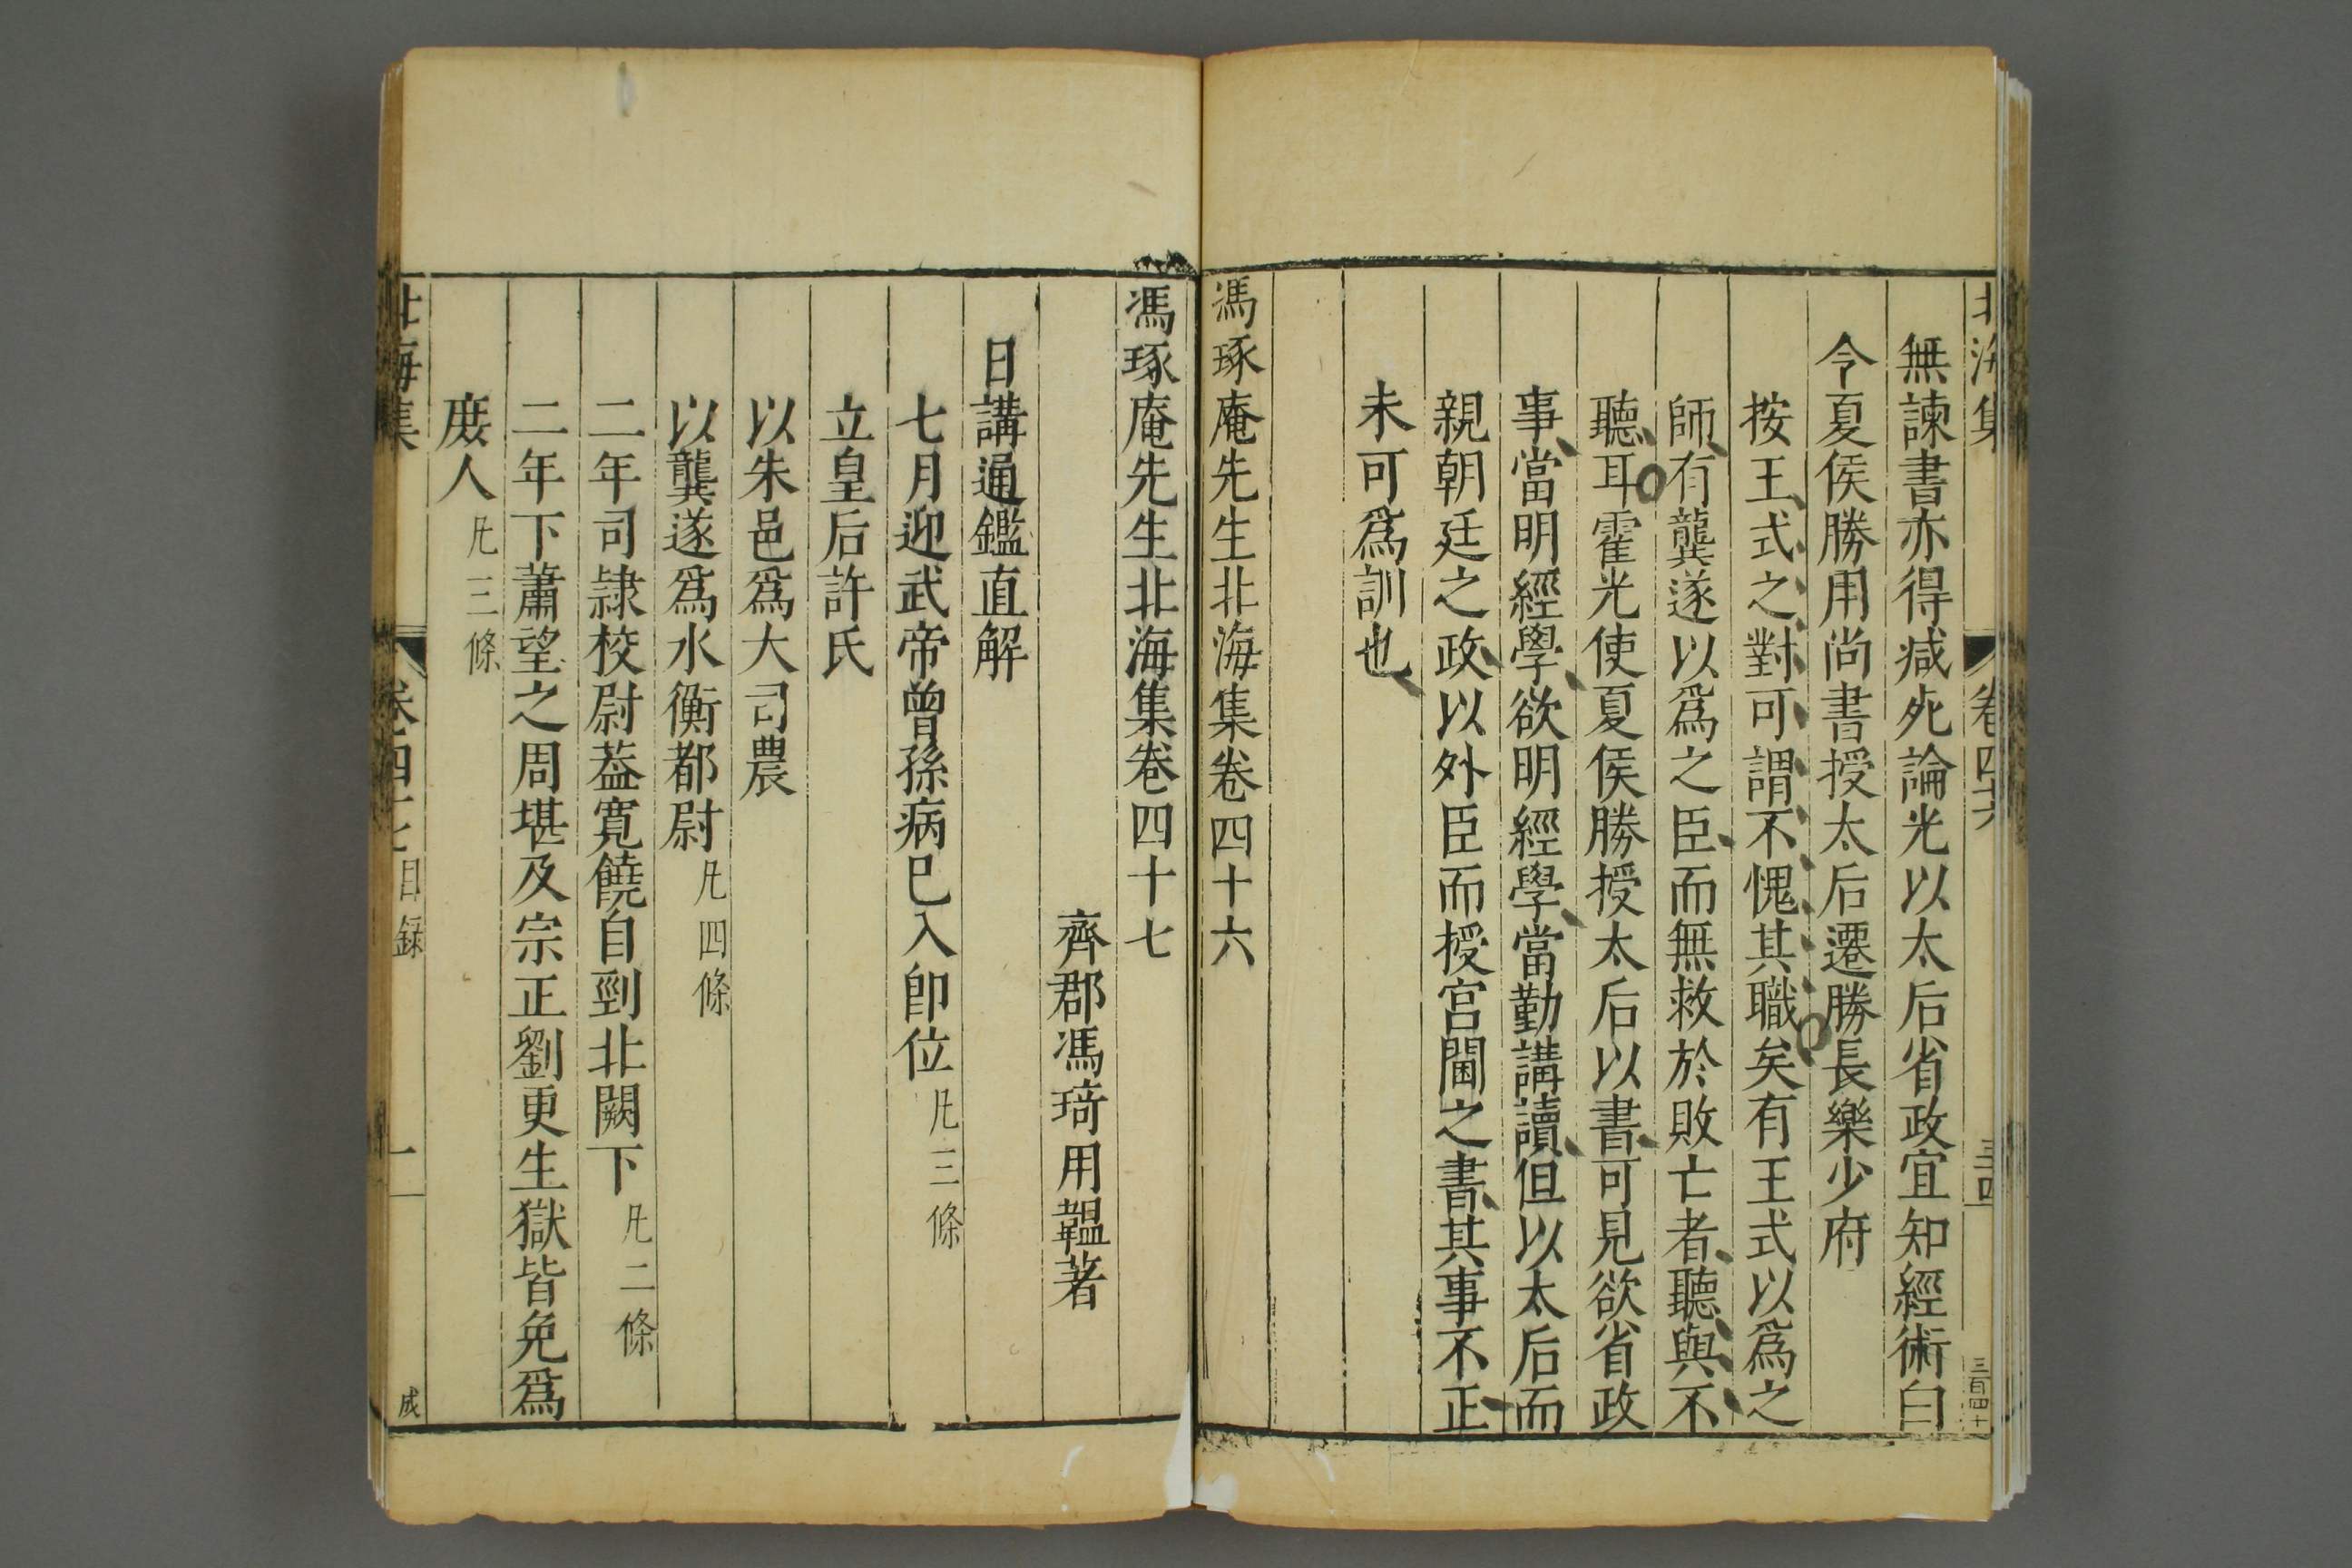 北海集
卷四十六
三十四
三百四十
無諫書亦得减死論光以太后省政宜知經術白
令夏侯勝用尚書授太后遷勝長樂少府
按王式之對可謂不愧其職矣有王式以爲之
師有龔遂以爲之臣而無救於敗亡者聽與不
聽耳霍光使夏侯勝授太后以書可見欲省政
事當明經學欲明經學當勤講讀但以太后而
親朝廷之政以外臣而授宮闈之書其事不正
未可爲訓也
馮琢庵先生北海集卷四十六
馮琢庵先生北海集卷四十七
齊郡馮琦用韞著
日講通鑑直解
七月迎武帝曾孫病已入卽位 凡三條
立皇后許氏
以朱邑爲大司農
以龔遂爲水衡都尉 凡四條
二年司隷校尉葢寬饒自剄北闕下 凡二條
二年下蕭望之周堪及宗正劉更生獄皆免爲
庻人 凡三條
北海集
卷四十七 目録
一
成